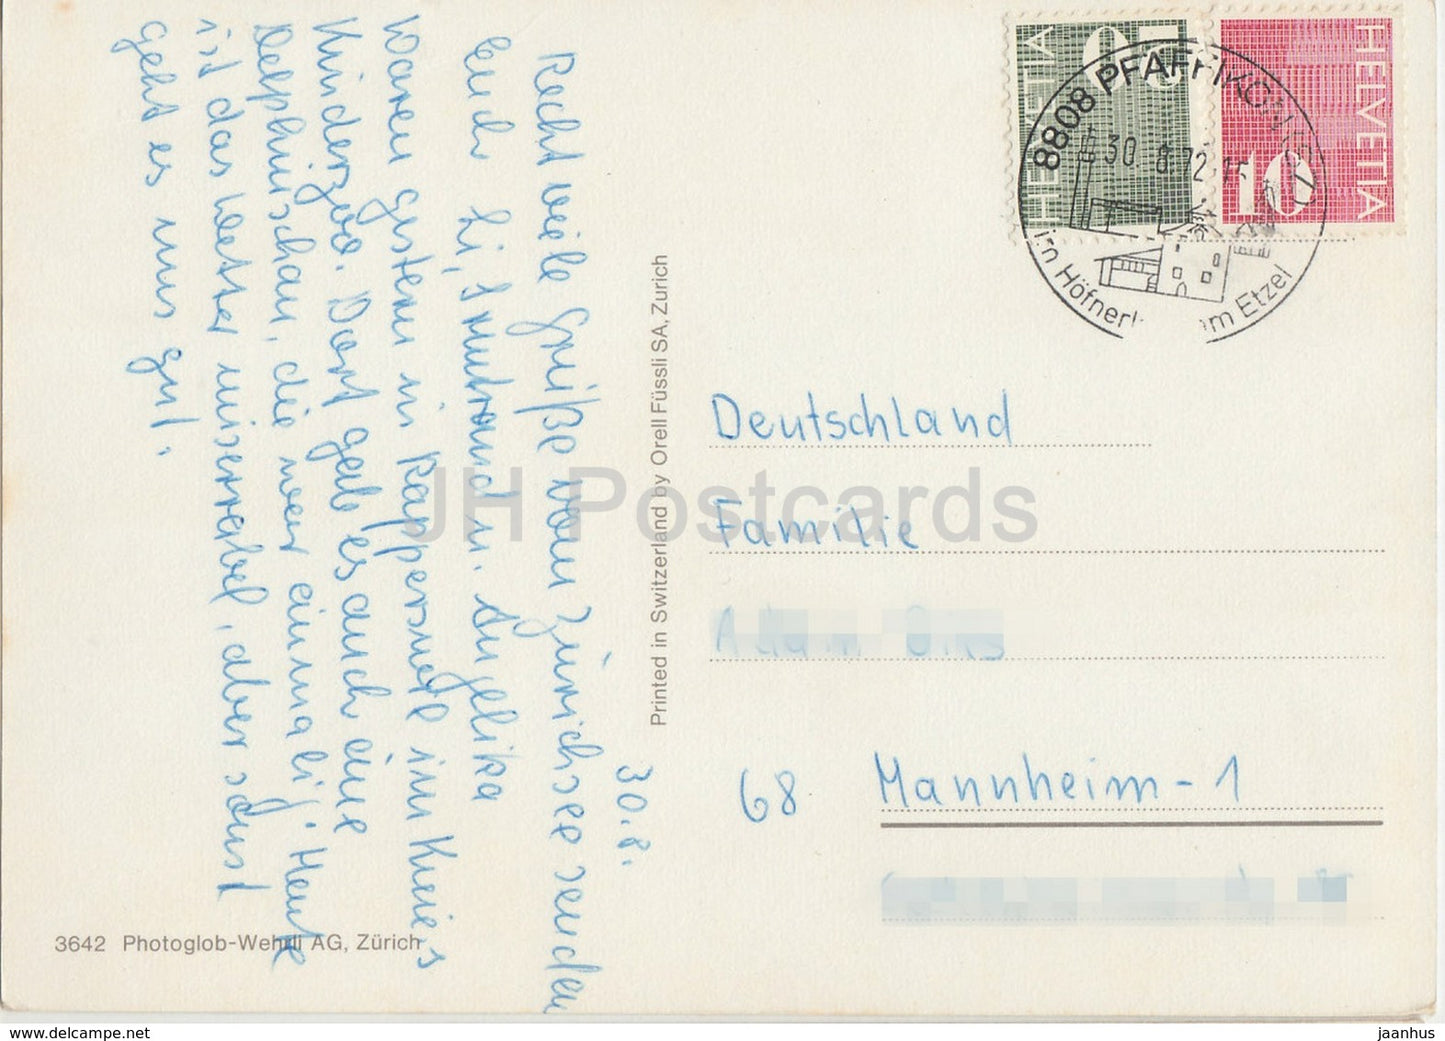 30.8.
Recht viele Grüße vom Zürichsee senden
Euch Li, u. Angelika
Waren gestern in Rapperswil im Knie's
Kinderzoo. Dort gab es auch eine
Delphinschau, die war einmalig. Heute
ist das Wetter miserabel, aber sonst
geht es uns gut.
3642 Photoglob-Wehrli AG, Zürich
Printed in Switzerland by Orell Füssli SA, Zurich
HELVETIA
HELVETIA
10
HELVETIA
HELVETIA
8808 PFÄFFIKON (SZ)
30. 8.72
Im Höfner am Etzel
Deutschland
Familie
68 Mannheim-1
JH Postcards
www.delcampe.net
jaanhus